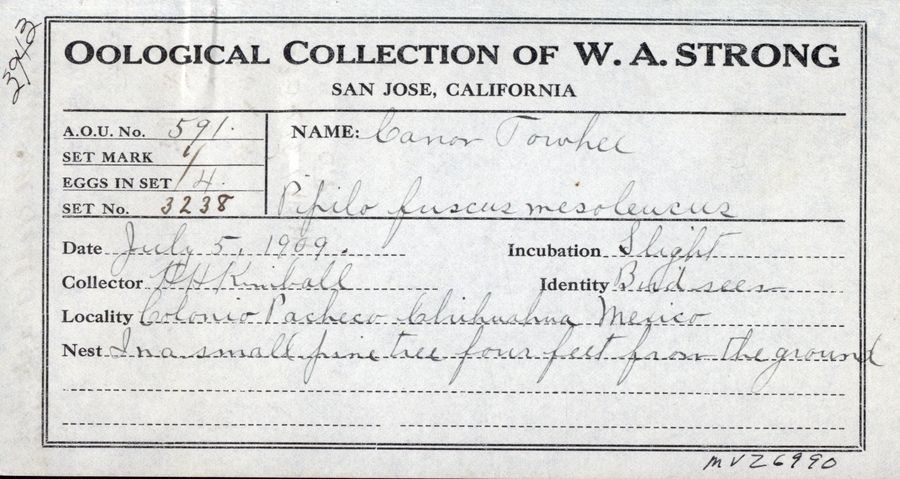 3943
OOLOGICAL COLLECTION OF W. A. STRONG
SAN JOSE, CALIFORNIA
A.O.U. No. 591.
SET MARK 1/4
EGGS IN SET
SET No. 3238
NAME: Canon Towhee
Pipilo fuscus mesoleucus
Date July 5, 1909. Incubation Slight
Collector HH Kimball Identity Bird seen
Locality Colonio Pacheco Chihuahua Mexico
Nest In a small pine tree four feet from the ground
MVZ 6990